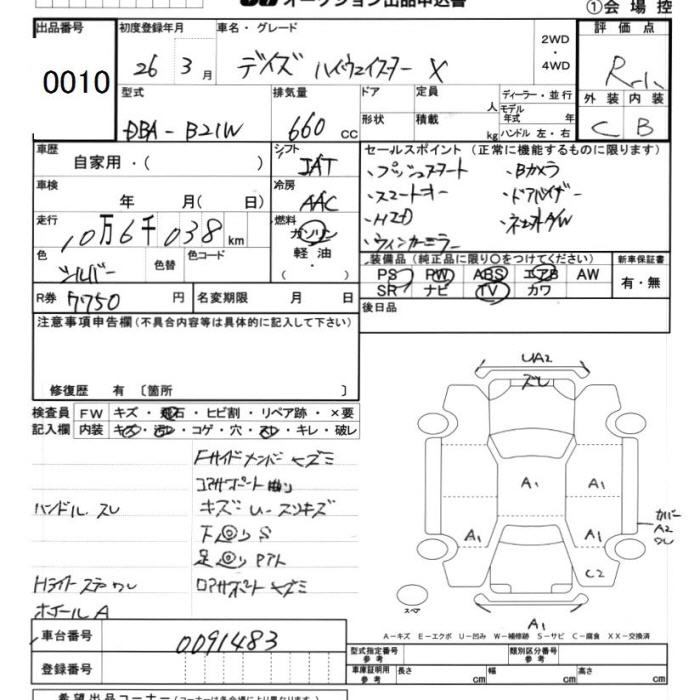 オークション出品申込書
①会場控
出品番号 初度登録年月 車名・グレード 2WD・4WD 評価点
0010 26年3月 デイズ ハイウェイスター X R-1
型式 排気量 ドア 定員 人 ディーラー・並行 外装 内装
DBA-B21W 660cc 形状 積載 kg モデル年式 年 ハンドル 左・右 C B
車歴 自家用・( ) シフト IAT セールスポイント(正常に機能するものに限ります)
・プッシュスタート ・Bカメラ
車検 年 月( 日) 冷房 AAC ・スマートキー ・ドアバイザー
走行 10万6千038km 燃料 ガソリン 軽油 ( ・ ) ・HID ・社外AW
・ウィンカーミラー
色 シルバー 色替 色コード 装備品(純正品に限り〇をつけてください) 新車保証書
PS PW ABS エアB AW 有・無
R券 7750円 名変期限 月 日 SR ナビ TV カワ
注意事項申告欄(不具合内容等は具体的に記入して下さい) 後日品
修復歴 有〔箇所 〕
検査員 FW キズ・飛石・ヒビ割・リペア跡・×要
記入欄 内装 キズ・汚レ・コゲ・穴・スレ・キレ・破レ
Fサイドメンバーヒズミ
コアサポート曲り
ハンドル スレ キズ U-スリキズ
下回り S
足回り
Hライト ステ ワレ ロアサポートヒズミ
ホイールA
UA2
ズレ
A1 A1
カバーA2ワレ
A1 A1
C2
スペア
A1
A-キズ E-エクボ U-凹み W-補修跡 S-サビ C-腐食 XX-交換済
車台番号 0091483
型式指定番号 参考 類別区分番号 参考
登録番号 車庫証明用 参考 長さ cm 幅 cm 高さ cm
希望出品コーナー(コーナーは各会場により異なります)